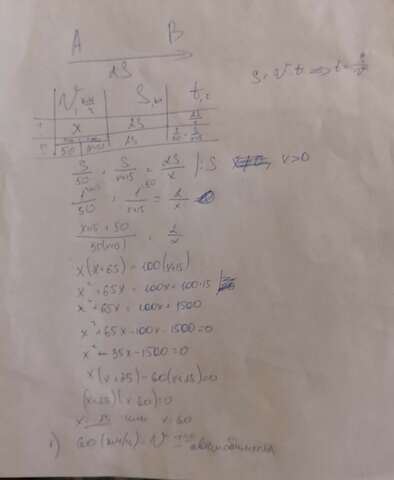 A B
2S
S = V·t ⇒ t = S/V
V, км/ч S, км t, ч
x 2S 2S/x
50 x+15 2S S/50 + S/x+15
S/50 + S/x+15 = 2S/x |:S x>0
1/50 + 1/x+15 = 2/x
x+15+50/50(x+15) = 2/x
x(x+65) = 100(x+15)
x²+65x = 100x+100·15
x²+65x = 100x+1500
x²+65x-100x-1500=0
x²-35x-1500=0
x(x+25)-60(x+25)=0
(x+25)(x-60)=0
x=-25 или x=60
1) 60 (км/ч) - V автомобилиста